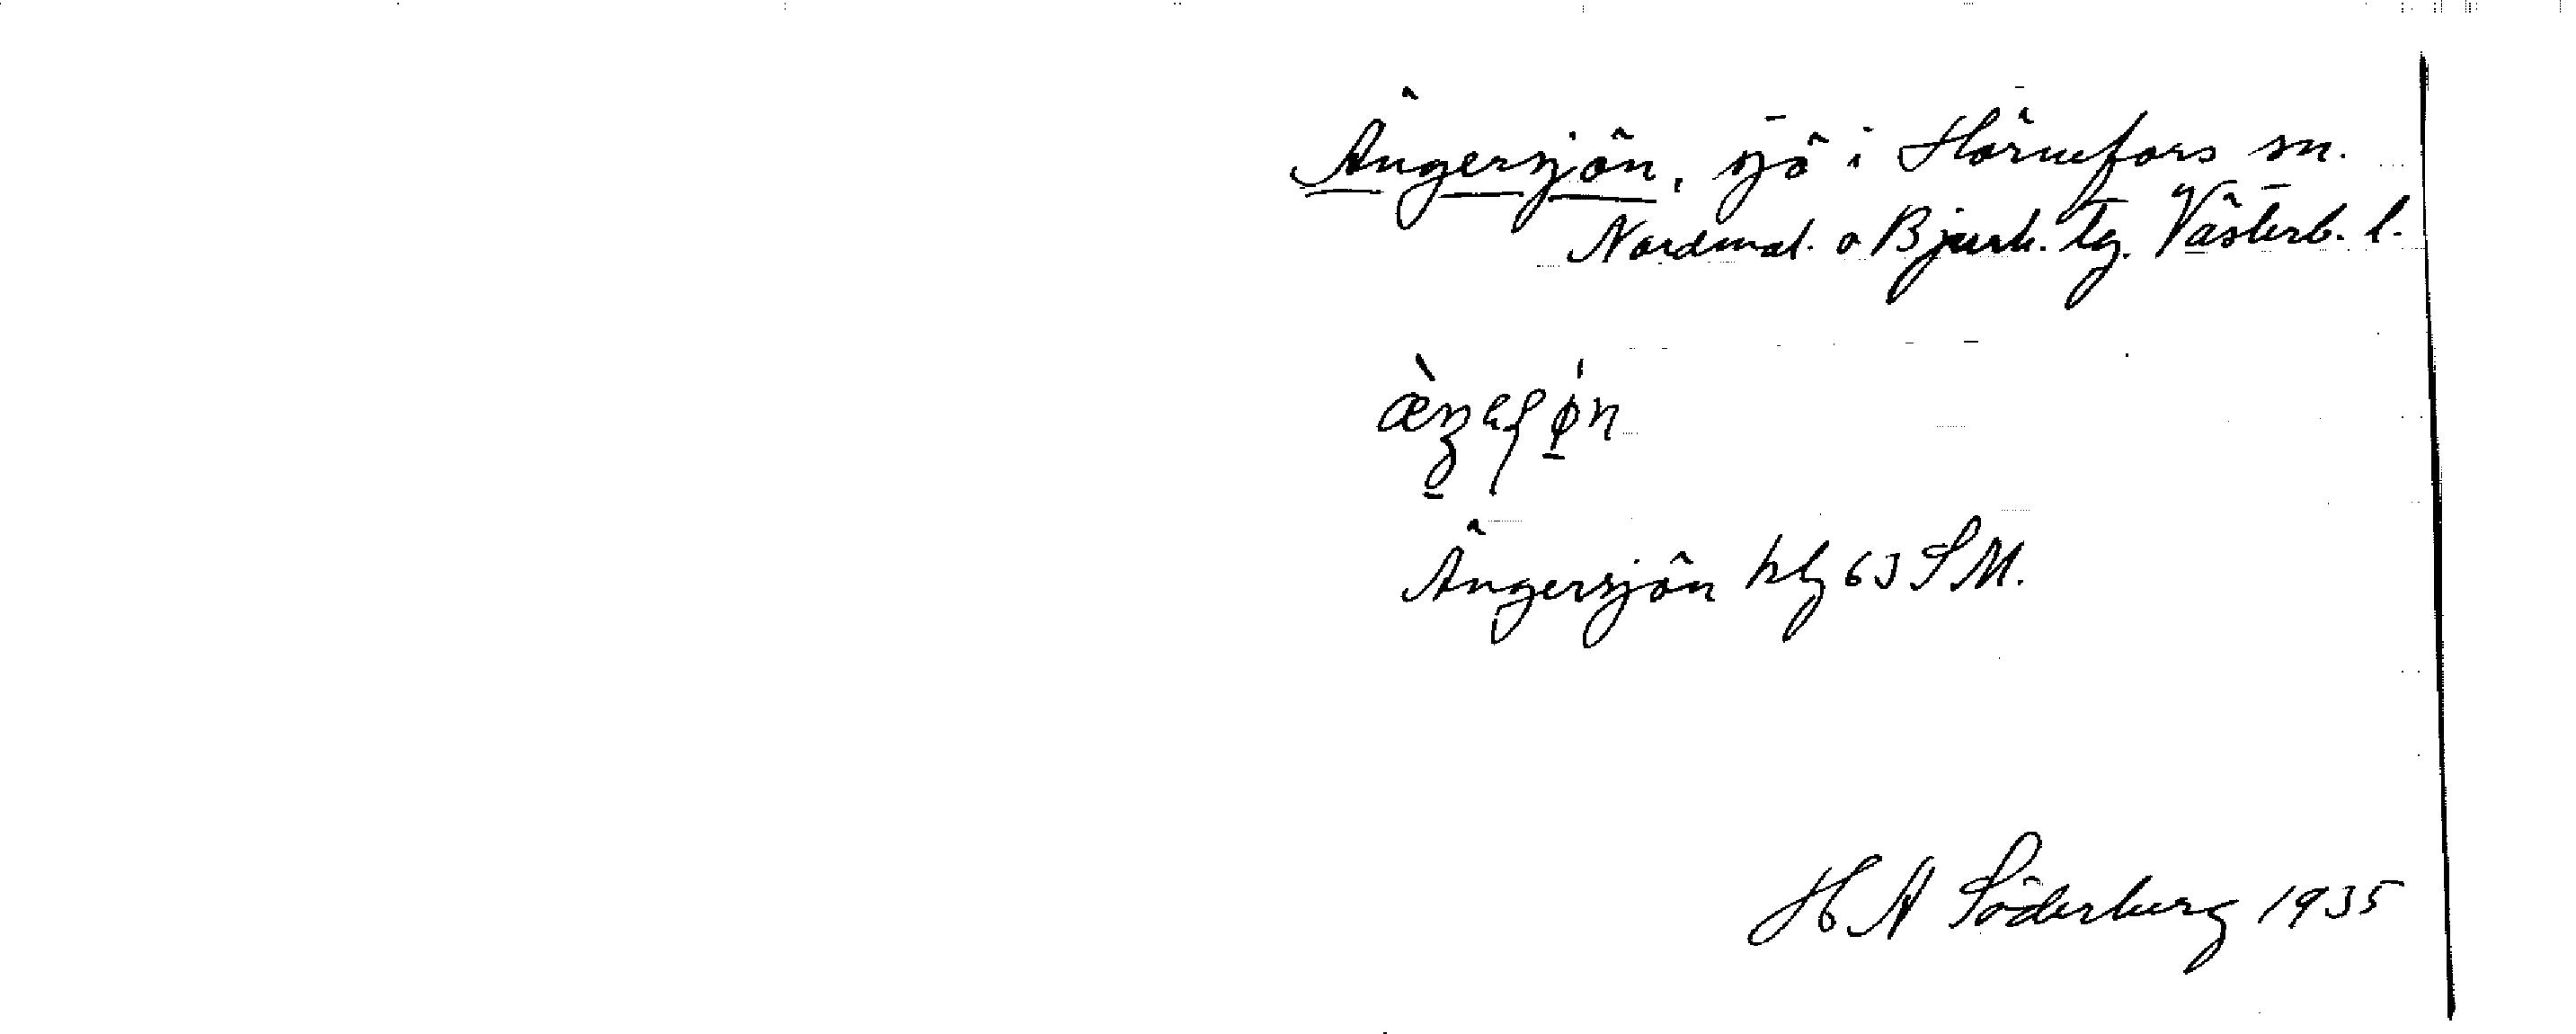 Ängersjön, sjö i Hörnefors sn.
Nordmal. o Bjurh. tg. Västerb. l.
Ängersjön hbl 63 SM.
H A Söderberg 1935